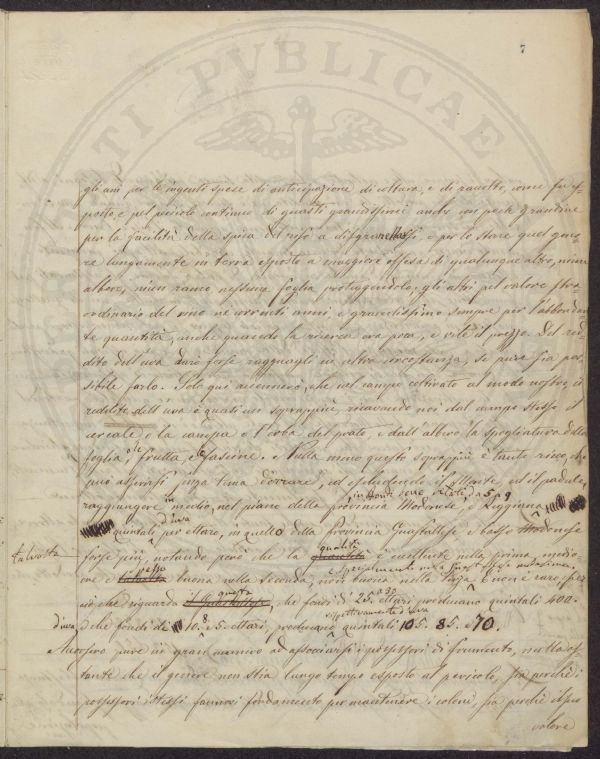 7
gli anni per le ingenti spese di anticipazione di coltura, e di raccolto, come fu es-
posto, e pel pericolo continuo di guasti grandissimi anche con poca grandine
per la facilità della spica del riso a disgranellarsi, e per lo stare quel gene-
re lungamente in terra esposto a maggiore offesa di qualunque altro, niun
albero, niun ramo nessuna foglia proteggendolo: gli altri pel valore stra-
ordinario del vino ne correnti anni, e grandissimo sempre per l'abbondan-
te quantità, anche quando la ricerca era poca, e vile il prezzo. Del red-
dito dell'uva darò forse ragguagli in altra circostanza, se pure fia pos-
sibile farlo. Solo qui accennerò, che nel campo coltivato al modo nostro, il
reddito dell'uva è quasi un soprappiù, ricavando noi dal campo stesso il
cereale o la canapa o l'erba del prato, e dall'albero la spogliatura della
foglia, o le frutta, e le fascine. Nulla meno questo soprappiù è tanto ricco, che
può asserirsi senza tema d'errare, ed escludendo il Monte, ed il padule,
raggiungere in medio, nel piano della provincia Modenese, e Reggiana
in monti sono relati da 5 a 9
d'uva
quintali per ettaro, in quello della Provincia Guastallese e basso Modenese
Talvolta
forse più, notando però che la qualità è eccellente nella prima, medio-
cre e spesso buona nella seconda, non buona nella terza e non è raro spe-
specialmente nella Guastallese mediocrissima
ciò che riguarda questa, che fondi di 25 a 30 ettari producano quintali 400.
rispettivamente d'uva
d'uva
e che fondi di 10. 8. e 5. ettari, producano quintali 105. 85. e 70.
pure in gran numero ad associarsi i possessori di frumento, nulla os-
tante che il genere non stia lungo tempo esposto al pericolo, fra perchè i
possessori istessi fannosi fondamento per mantenere i coloni, fra perchè il suo
valore